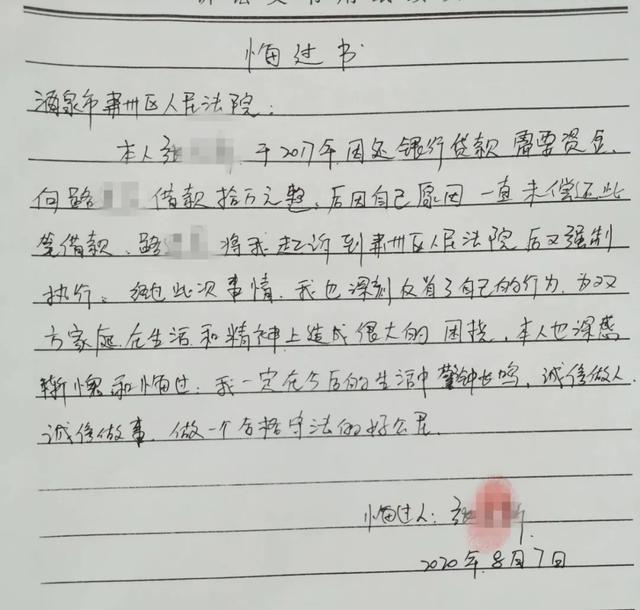 悔过书
酒泉市肃州区人民法院：
本人张 于2017年因还银行贷款需要资金，
向路 借款拾万元整，后因自己原因一直未偿还此
笔借款，路 将我起诉到肃州区人民法院后又强制
执行。经过此次事情，我也深刻反省了自己的行为，为双
方家庭在生活和精神上造成很大的困扰，本人也深感
惭愧和悔过，我一定在今后的生活中警钟长鸣，诚信做人，
诚信做事，做一个合格守法的好公民。
悔过人：张
2020年8月7日